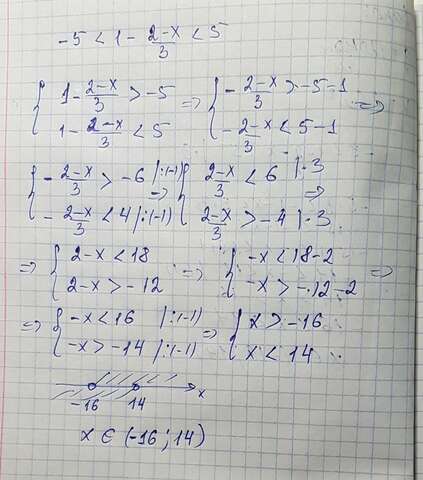 -5 < 1 - (2-x)/3 < 5
{ 1 - (2-x)/3 > -5 => { - (2-x)/3 > -5-1 =>
1 - (2-x)/3 < 5 - (2-x)/3 < 5-1
{ - (2-x)/3 > -6 |:(-1) => { (2-x)/3 < 6 |·3 =>
- (2-x)/3 < 4 |:(-1) (2-x)/3 > -4 |·3
=> { 2-x < 18 => { -x < 18-2 =>
2-x > -12 -x > -12-2
=> { -x < 16 |:(-1) => { x > -16
-x > -14 |:(-1) x < 14
-16 14 x
x ∈ (-16; 14)